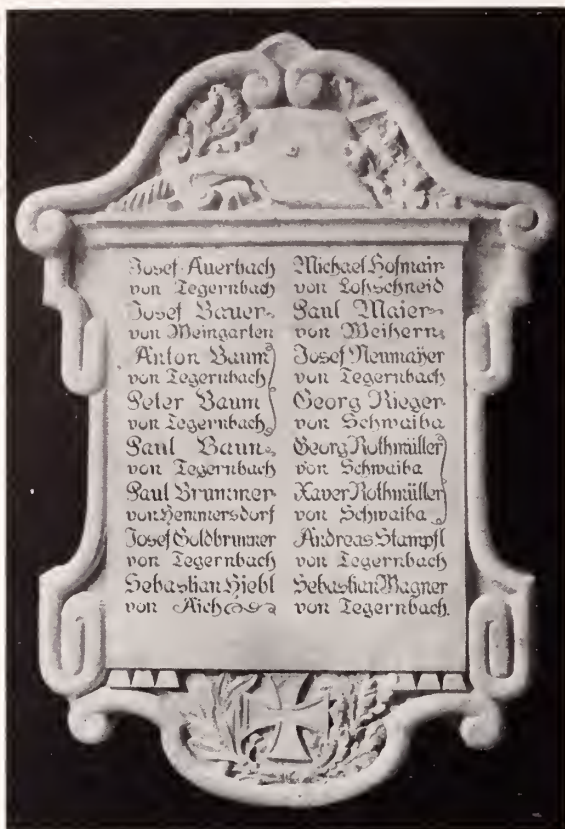 Josef Auerbach
von Tegernbach
Josef Bauer
von Weingarten
Anton Baum
von Tegernbach
Peter Baum
von Tegernbach
Paul Baun
von Tegernbach
Paul Brummer
von Hemmersdorf
Josef Goldbrunner
von Tegernbach
Sebastian Hiebl
von Aich
Michael Hofmair
von Lohschneid
Paul Maier
von Weihern
Josef Neumayer
von Tegernbach
Georg Rieger
von Schwaiba
Georg Rothmüller
von Schwaiba
Xaver Rothmüller
von Schwaiba
Andreas Stampfl
von Tegernbach
Sebastian Wagner
von Tegernbach.